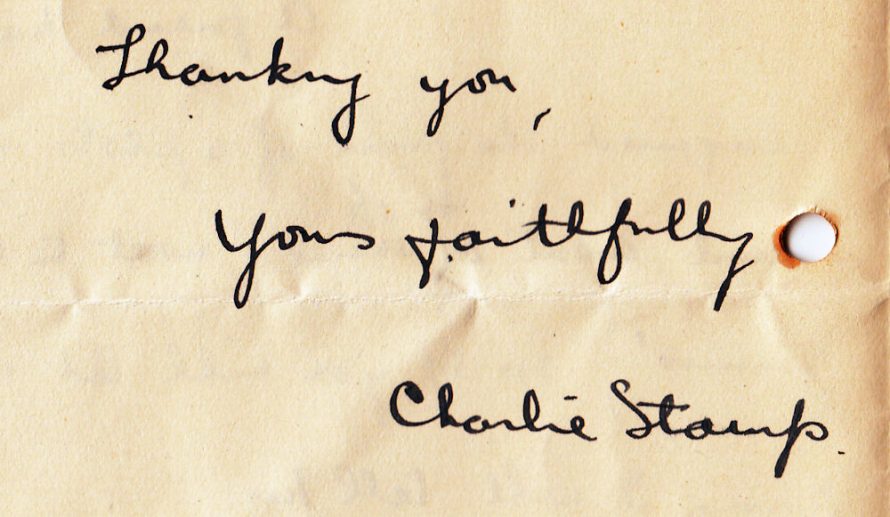 Thanking you,
Yours faithfully
Charlie Stamp.